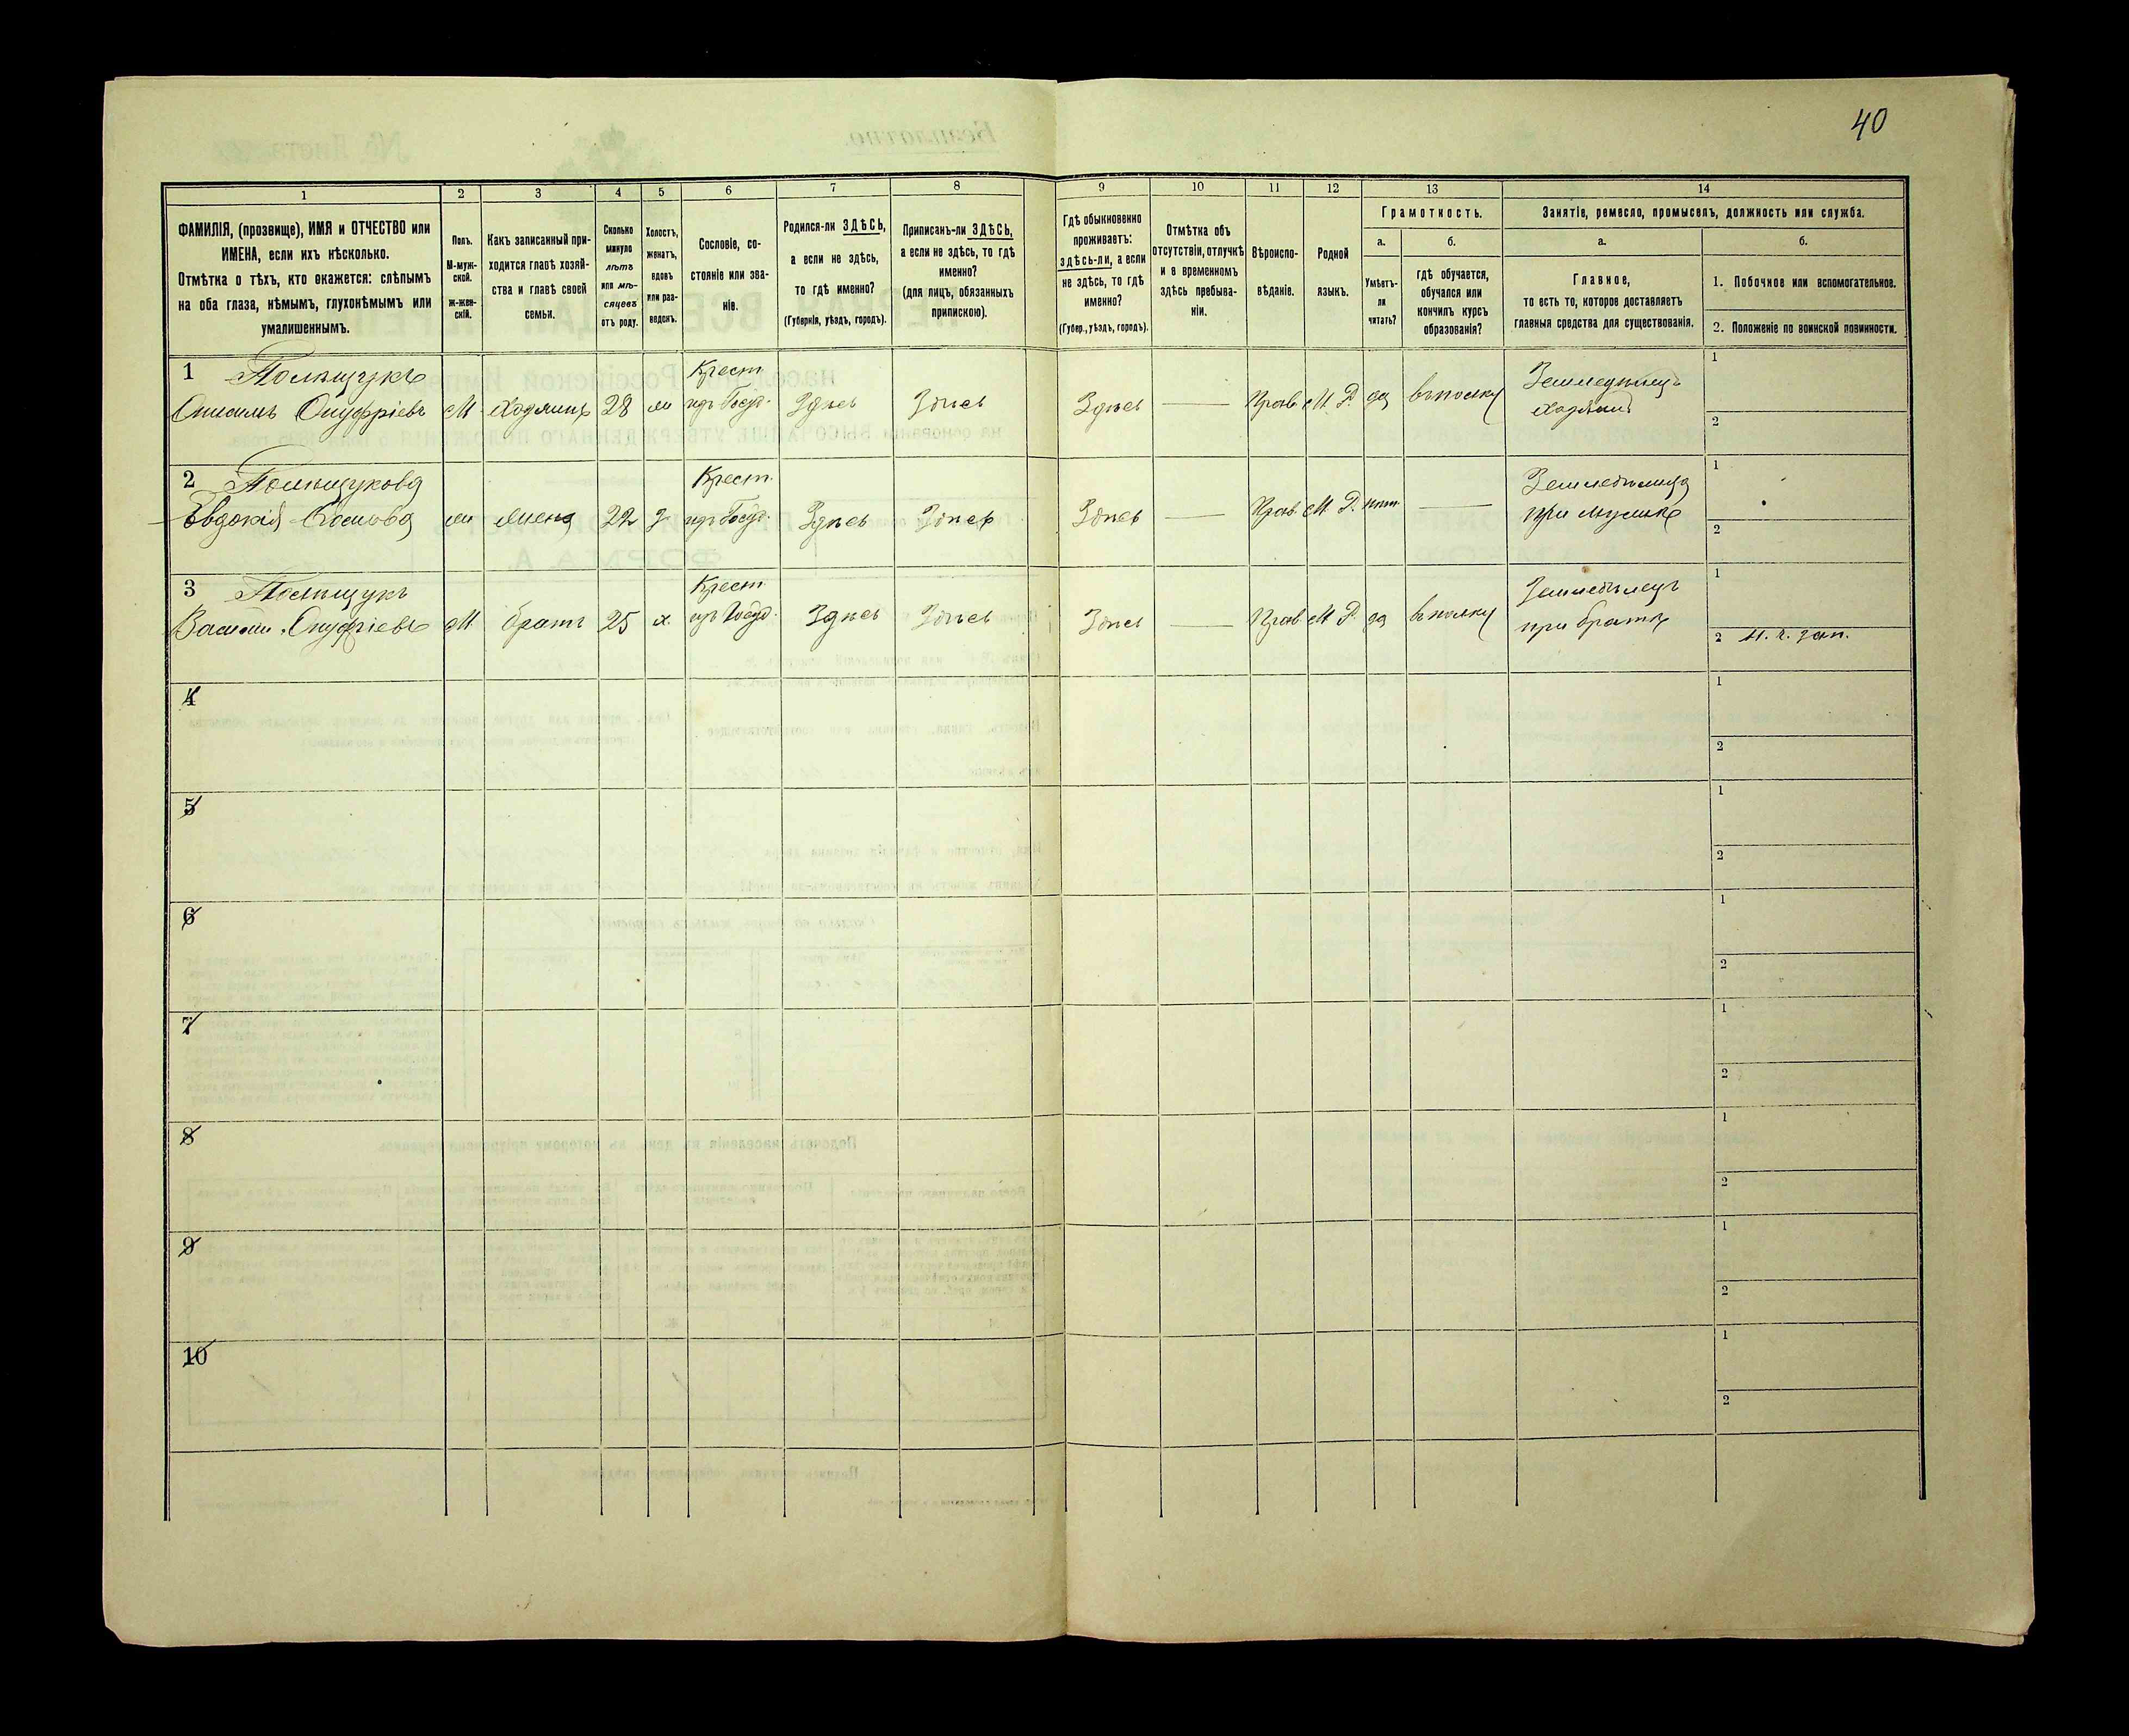 40
1 2 3 4 5 6 7 8 9 10 11 12 13 14
ФАМИЛІЯ, (прозвище), ИМЯ и ОТЧЕСТВО или
ИМЕНА, если ихъ нѣсколько.
Отмѣтка о тѣхъ, кто окажется: слѣпымъ
на оба глаза, нѣмымъ, глухонѣмымъ или
умалишеннымъ.
Полъ.
М-муж-
ской.
ж-жен-
скій.
Какъ записанный при-
ходится главѣ хозяй-
ства и главѣ своей
семьи.
Сколько
минуло
лѣтъ
или мѣ-
сяцевъ
отъ роду.
Холостъ,
женатъ,
вдовъ
или раз-
веденъ.
Сословіе, со-
стояніе или зва-
ніе.
Родился-ли ЗДѢСЬ,
а если не здѣсь,
то гдѣ именно?
(Губернія, уѣздъ, городъ).
Приписанъ-ли ЗДѢСЬ,
а если не здѣсь, то гдѣ
именно?
(для лицъ, обязанныхъ
припискою).
Гдѣ обыкновенно
проживаетъ:
здѣсь-ли, а если
не здѣсь, то гдѣ
именно?
(Губер., уѣздъ, городъ).
Отмѣтка объ
отсутствіи, отлучкѣ
и о временномъ
здѣсь пребыва-
ніи.
Вѣроиспо-
вѣданіе.
Родной
языкъ.
Грамотность.
а.
Умѣетъ-
ли
читать?
б.
гдѣ обучается,
обучался или
кончилъ курсъ
образованія?
Занятіе, ремесло, промыселъ, должность или служба.
а.
Главное,
то есть то, которое доставляетъ
главныя средства для существованія.
б.
1. Побочное или вспомогательное.
2. Положеніе по воинской повинности.
1 Полищукъ Крест. Земледѣлецъ 1
Онуфріевъ М Хозяинъ 28 ж изъ Госуд. Здѣсь Здѣсь Здѣсь — Прав. М. Р. да въ полку Хозяинъ
2
2 Полищукова Крест. Земледѣлица 1
Евдокія ж жена 22 з изъ Госуд. Здѣсь Здѣсь Здѣсь Прав. М. Р. нѣт. — при мужѣ
2
3 Полищукъ Крест. Земледѣлецъ 1
Онуфріевъ М братъ 25 х изъ Госуд. Здѣсь Здѣсь Здѣсь — Прав. М. Р. да въ полку при братѣ
2 Н. ч. зап.
4 1
2
5 1
2
6 1
2
7 1
2
8 1
2
9 1
2
10 1
2